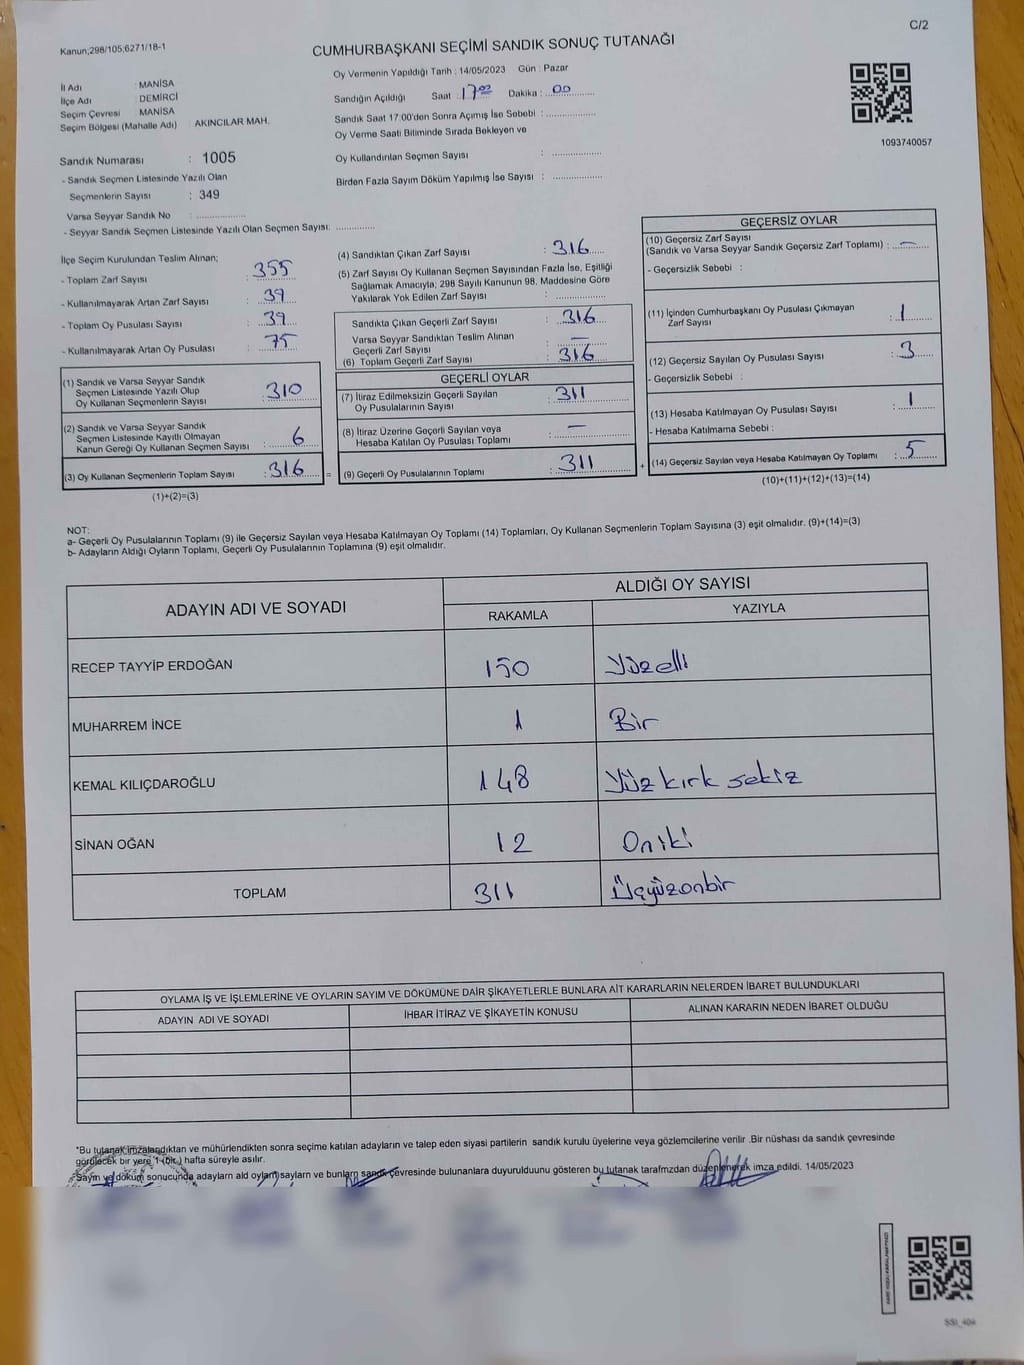 C/2
Kanun;298/105;6271/18-1
CUMHURBAŞKANI SEÇİMİ SANDIK SONUÇ TUTANAĞI
İl Adı : MANİSA
İlçe Adı : DEMİRCİ
Seçim Çevresi : MANİSA
Seçim Bölgesi (Mahalle Adı) : AKINCILAR MAH.
Sandık Numarası : 1005
- Sandık Seçmen Listesinde Yazılı Olan
Seçmenlerin Sayısı : 349
Varsa Seyyar Sandık No : ..................
- Seyyar Sandık Seçmen Listesinde Yazılı Olan Seçmen Sayısı: ..............
Oy Vermenin Yapıldığı Tarih : 14/05/2023 Gün : Pazar
Sandığın Açıldığı Saat : 17 00 Dakika : 00
Sandık Saat 17:00'den Sonra Açımış İse Sebebi : ..................
Oy Verme Saati Bitiminde Sırada Bekleyen ve
Oy Kullandırılan Seçmen Sayısı : ..................
Birden Fazla Sayım Döküm Yapılmış İse Sayısı : ..................
1093740057
İlçe Seçim Kurulundan Teslim Alınan;
- Toplam Zarf Sayısı : 355
- Kullanılmayarak Artan Zarf Sayısı : 39
- Toplam Oy Pusulası Sayısı : 39
- Kullanılmayarak Artan Oy Pusulası : 75
(1) Sandık ve Varsa Seyyar Sandık
Seçmen Listesinde Yazılı Olup
Oy Kullanan Seçmenlerin Sayısı : 310
(2) Sandık ve Varsa Seyyar Sandık
Seçmen Listesinde Kayıtlı Olmayan
Kanun Gereği Oy Kullanan Seçmen Sayısı : 6
(3) Oy Kullanan Seçmenlerin Toplam Sayısı : 316 =
(1)+(2)=(3)
(4) Sandıktan Çıkan Zarf Sayısı : 316
(5) Zarf Sayısı Oy Kullanan Seçmen Sayısından Fazla İse, Eşitliği
Sağlamak Amacıyla; 298 Sayılı Kanunun 98. Maddesine Göre
Yakılarak Yok Edilen Zarf Sayısı : ..................
Sandıkta Çıkan Geçerli Zarf Sayısı : 316
Varsa Seyyar Sandıktan Teslim Alınan
Geçerli Zarf Sayısı : —
(6) Toplam Geçerli Zarf Sayısı : 316
GEÇERLİ OYLAR
(7) İtiraz Edilmeksizin Geçerli Sayılan
Oy Pusulalarının Sayısı : 311
(8) İtiraz Üzerine Geçerli Sayılan veya
Hesaba Katılan Oy Pusulası Toplamı : —
(9) Geçerli Oy Pusulalarının Toplamı : 311 +
GEÇERSİZ OYLAR
(10) Geçersiz Zarf Sayısı
(Sandık ve Varsa Seyyar Sandık Geçersiz Zarf Toplamı) : —
- Geçersizlik Sebebi :
(11) İçinden Cumhurbaşkanı Oy Pusulası Çıkmayan
Zarf Sayısı : 1
(12) Geçersiz Sayılan Oy Pusulası Sayısı : 3
- Geçersizlik Sebebi :
(13) Hesaba Katılmayan Oy Pusulası Sayısı : 1
- Hesaba Katılmama Sebebi :
(14) Geçersiz Sayılan veya Hesaba Katılmayan Oy Toplamı : 5
(10)+(11)+(12)+(13)=(14)
NOT:
a- Geçerli Oy Pusulalarının Toplamı (9) ile Geçersiz Sayılan veya Hesaba Katılmayan Oy Toplamı (14) Toplamları, Oy Kullanan Seçmenlerin Toplam Sayısına (3) eşit olmalıdır. (9)+(14)=(3)
b- Adayların Aldığı Oyların Toplamı, Geçerli Oy Pusulalarının Toplamına (9) eşit olmalıdır.
ADAYIN ADI VE SOYADI
ALDIĞI OY SAYISI
RAKAMLA YAZIYLA
RECEP TAYYİP ERDOĞAN 150 Yüzelli
MUHARREM İNCE 1 Bir
KEMAL KILIÇDAROĞLU 148 Yüz kırk sekiz
SİNAN OĞAN 12 Oniki
TOPLAM 311 Üçyüzonbir
OYLAMA İŞ VE İŞLEMLERİNE VE OYLARIN SAYIM VE DÖKÜMÜNE DAİR ŞİKAYETLERLE BUNLARA AİT KARARLARIN NELERDEN İBARET BULUNDUKLARI
ADAYIN ADI VE SOYADI İHBAR İTİRAZ VE ŞİKAYETİN KONUSU ALINAN KARARIN NEDEN İBARET OLDUĞU
*Bu tutanak imzalandıktan ve mühürlendikten sonra seçime katılan adayların ve talep eden siyasi partilerin sandık kurulu üyelerine veya gözlemcilerine verilir .Bir nüshası da sandık çevresinde
görülecek bir yere 1 (bir) hafta süreyle asılır.
*Sayım ve döküm sonucunda adayların ald oyların sayların ve bunların sandık çevresinde bulunanlara duyurulduunu gösteren bu tutanak tarafmzdan düzenlenerek imza edildi. 14/05/2023
SSI_404